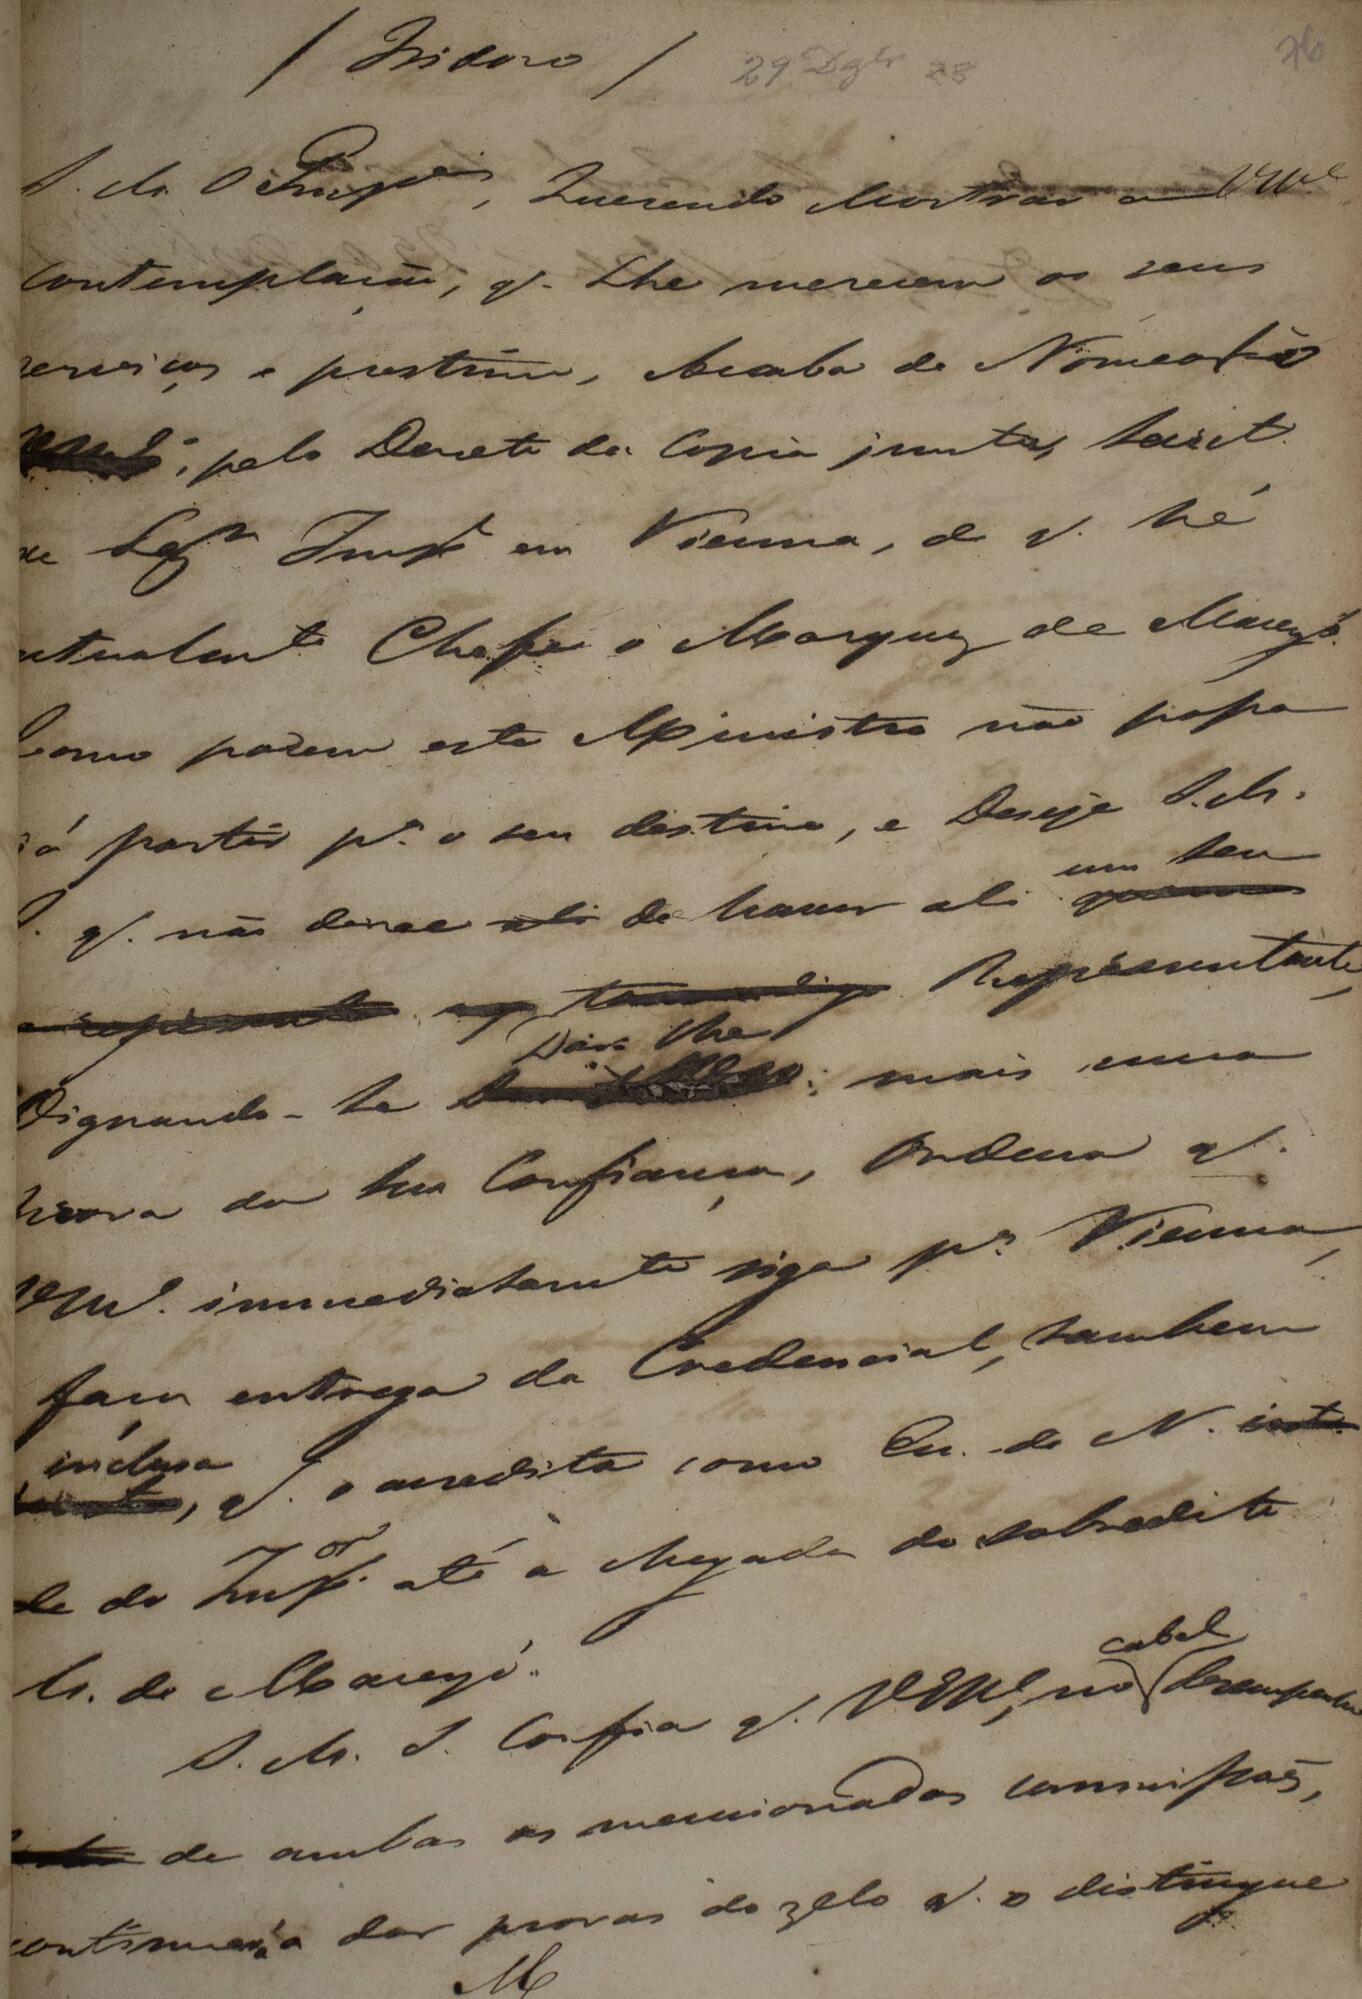 / Isidoro / 29 Dzbr 28 26
S. M. O Querendo Mostrar a VM.ce
contemplação, q. Lhe merecem os seus
serviços e prestimo, Acaba de Nomeal-o
pelo Decreto da Copia junta, Secret.
de Leg.m Imp.l em Vienna, de q. hé
actualmente Chefe o Marquez de Maceyó.
Como porem este Ministro não possa
já partir p.a o seu destino, e Deseje S. M.
I. q. não deixe ali de haver ali um seu
Representante,
Dignando-se Dar-lhe mais uma
prova da sua Confiança, Ordena q.
VM.ce immediatamente siga p.a Vienna,
faça entrega da Credencial, tambem
inclusa, q. o acredita como En. de N.
de do Imp.or até a chegada do sobredito
M. de Maceyó.
S. M. I. Confia q. VM.ce, no cabal desempenho
de ambas as mencionadas commissões,
continuará a dar provas do zelo q. o distingue